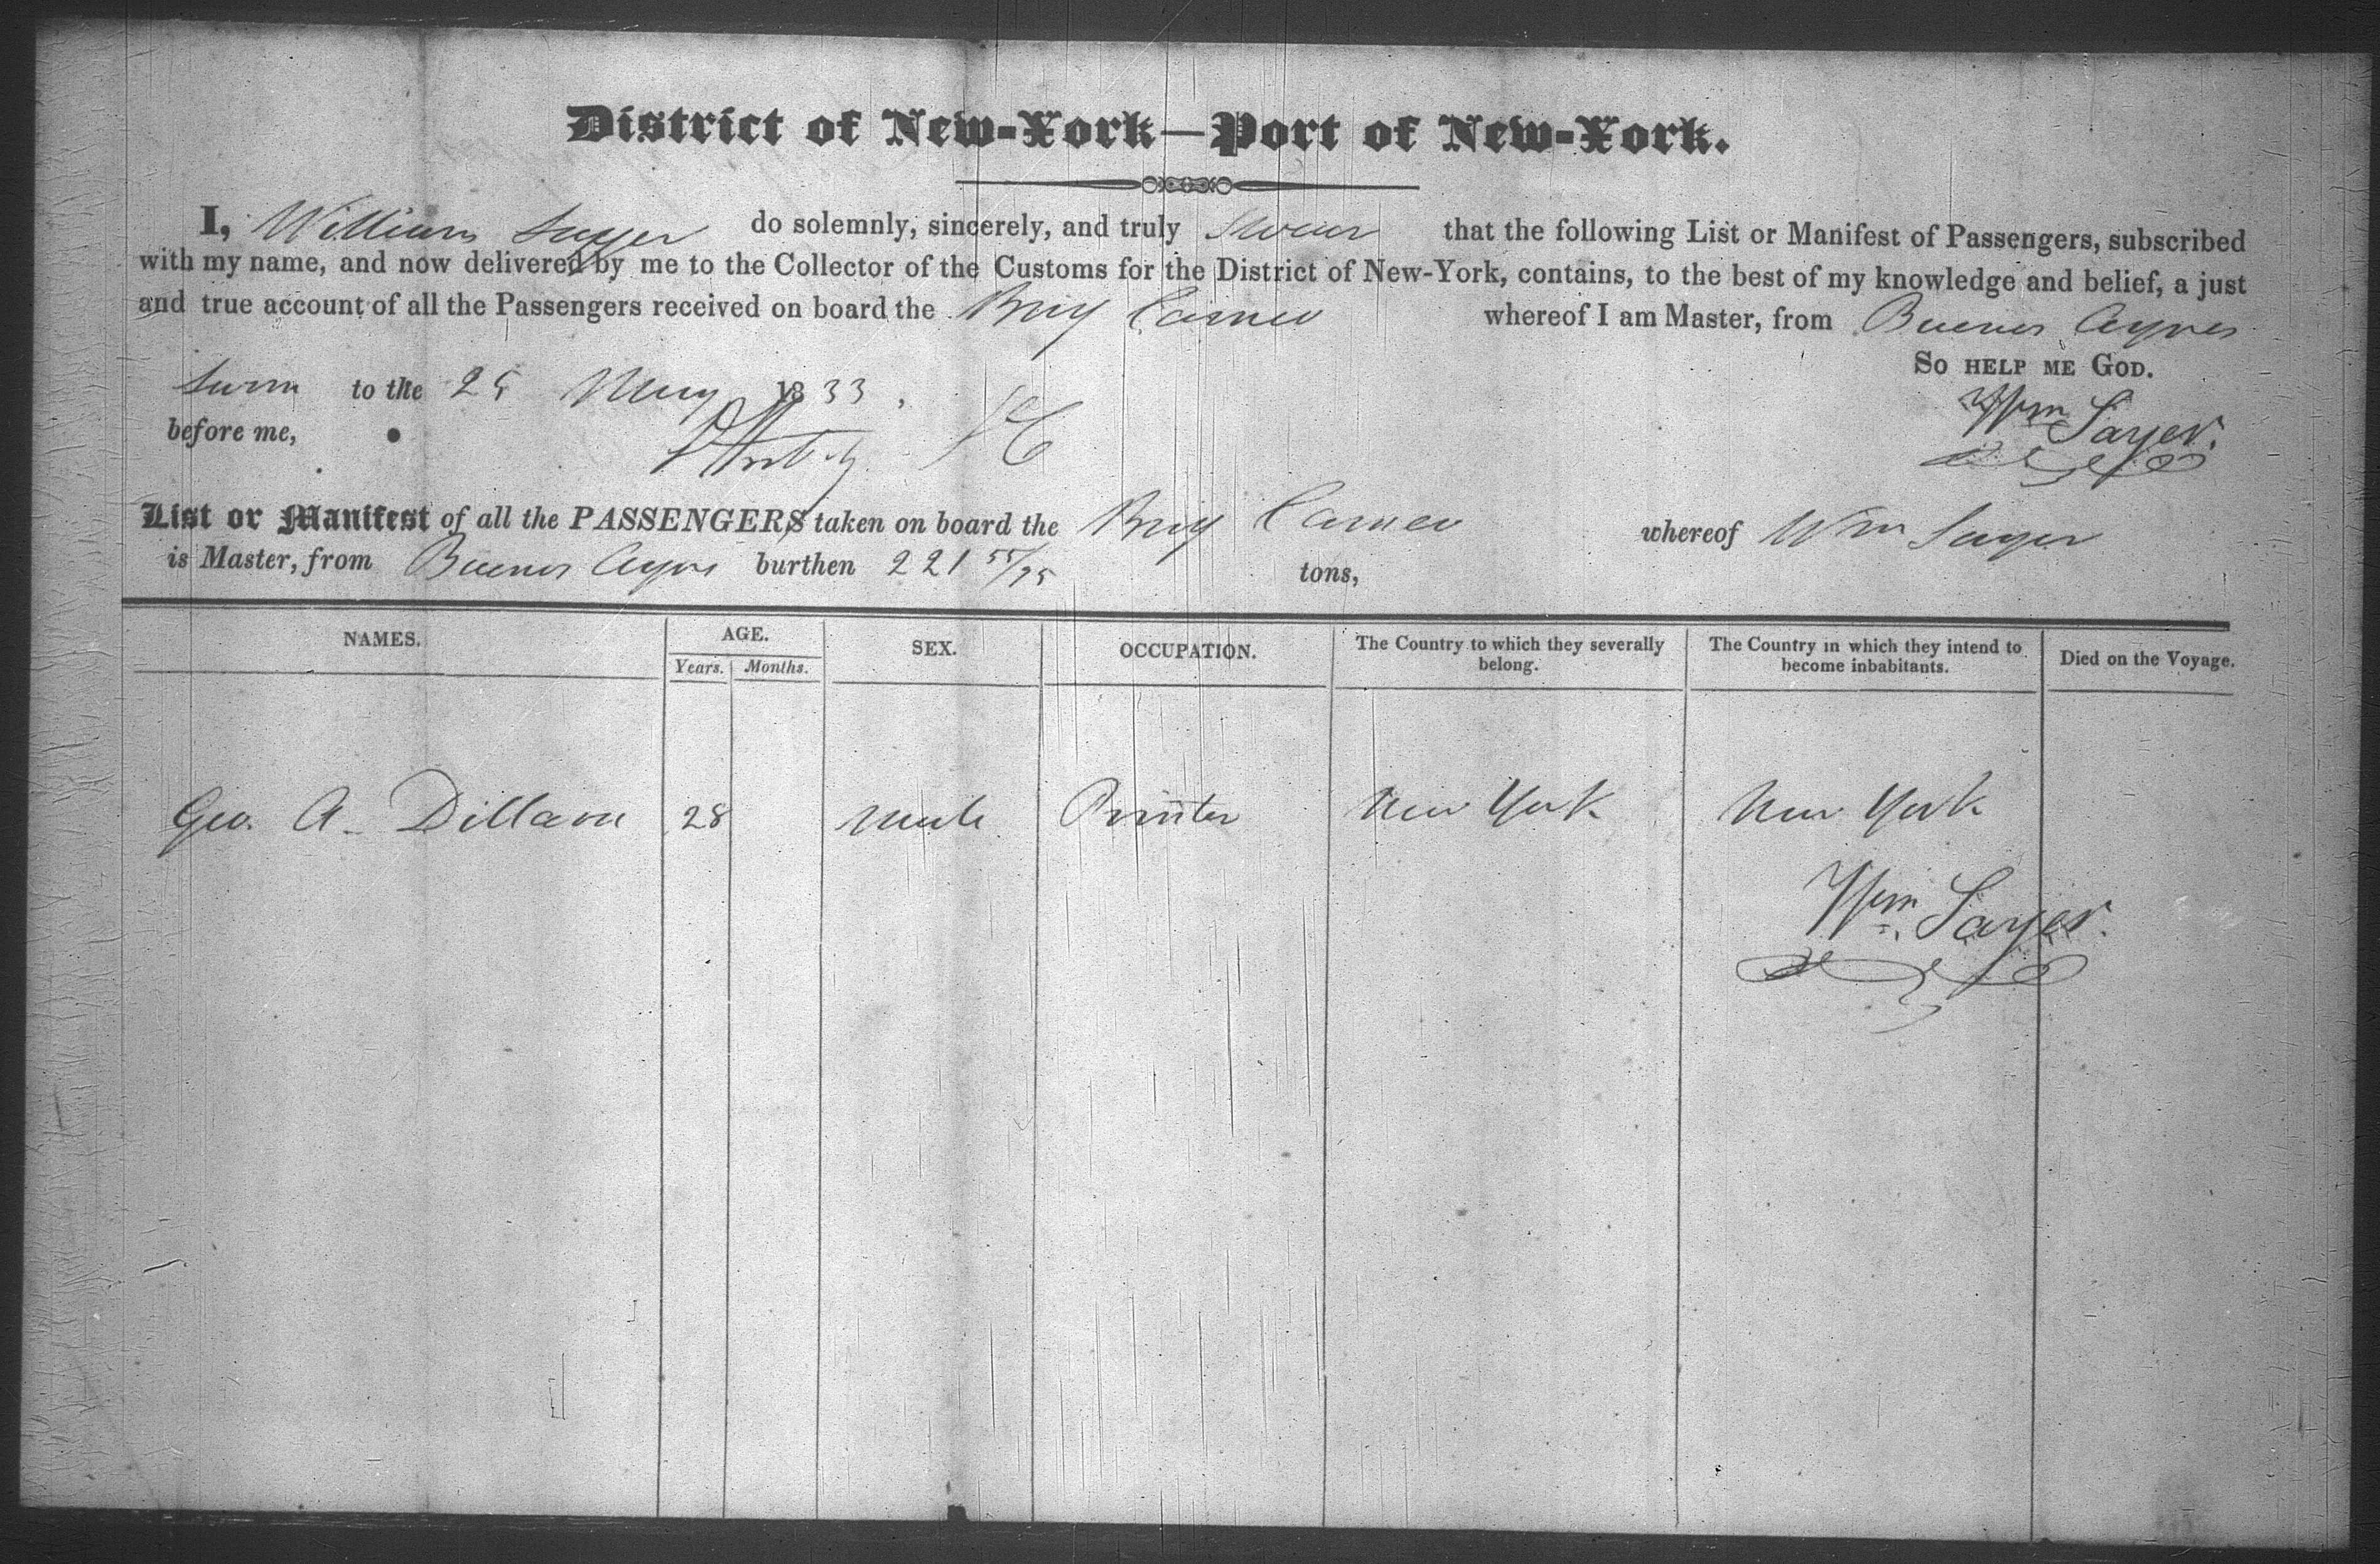 District of New-York—Port of New-York.
I, William Sayer do solemnly, sincerely, and truly Swear that the following List or Manifest of Passengers, subscribed
with my name, and now delivered by me to the Collector of the Customs for the District of New-York, contains, to the best of my knowledge and belief, a just
and true account of all the Passengers received on board the Brig Cameo whereof I am Master, from Buenos Ayres
So help me God.
Sworn to the 25 May 1833,
Wm Sayer.
before me,
List or Manifest of all the PASSENGERS taken on board the Brig Cameo whereof Wm Sayer
is Master, from Buenos Ayres burthen 221 55/95 tons,
NAMES. AGE. SEX. OCCUPATION. The Country to which they severally belong. The Country in which they intend to become inhabitants. Died on the Voyage.
Years. Months.
Geo. A. Dillam 28 male Printer New York New York
Wm. Sayer.